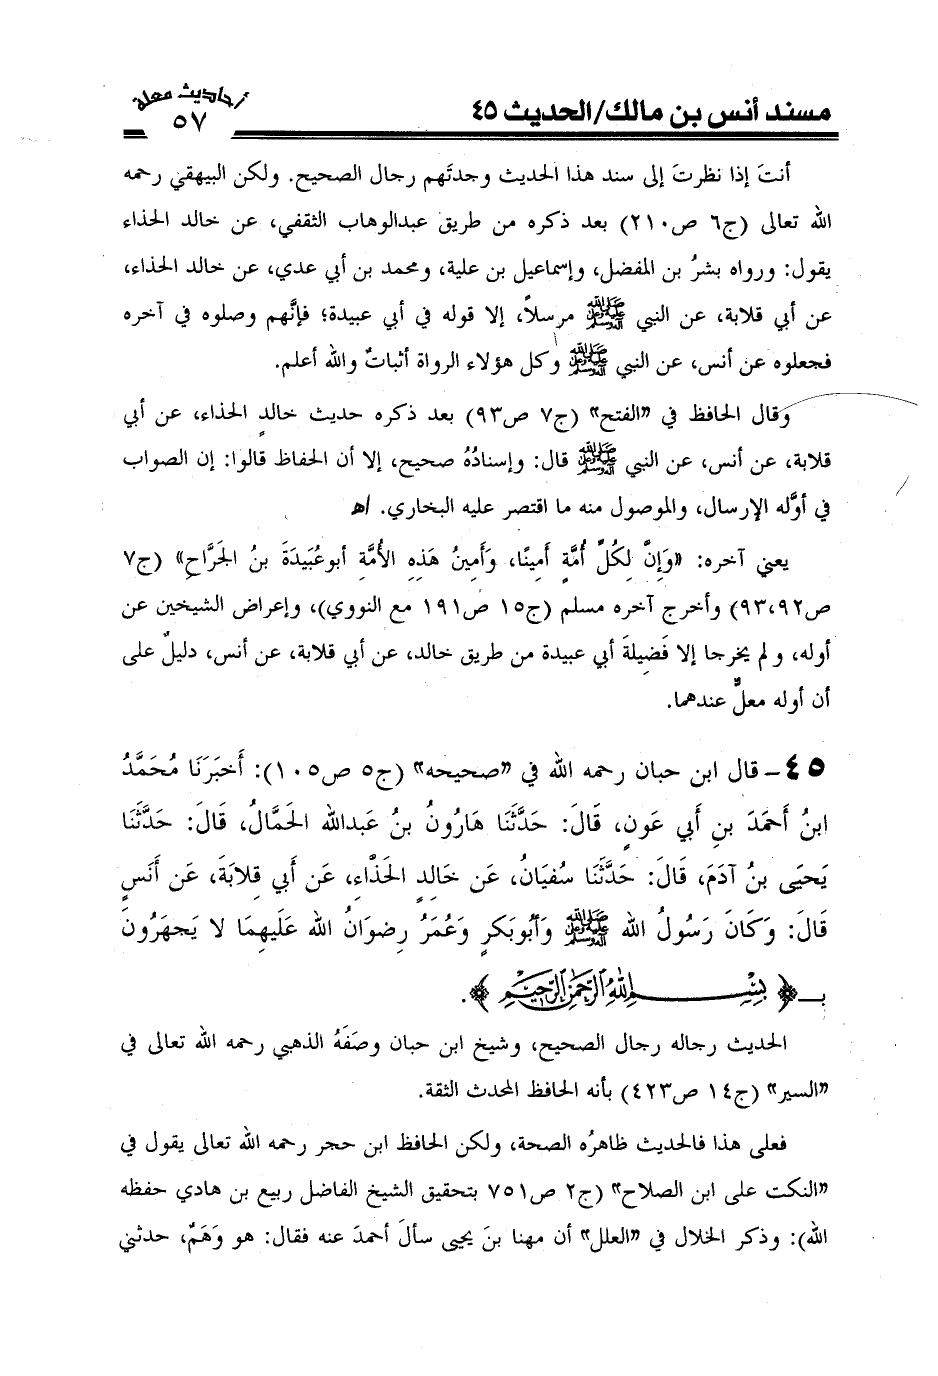 مسند أنس بن مالك/الحديث ٤٥
أحاديث معلة
٥٧
أنتَ إذا نظرتَ إلى سند هذا الحديث وجدتَهم رجال الصحيح. ولكن البيهقي رحمه
الله تعالى (ج٦ ص٢١٠) بعد ذكره من طريق عبدالوهاب الثقفي، عن خالد الحذاء
يقول: ورواه بشرُ بن المفضل، وإسماعيل بن علية، ومحمد بن أبي عدي، عن خالد الحذاء،
عن أبي قلابة، عن النبي ﷺ مرسلاً، إلا قوله في أبي عبيدة؛ فإنَّهم وصلوه في آخره
فجعلوه عن أنس، عن النبي ﷺ وكل هؤلاء الرواة أثباتٌ والله أعلم.
وقال الحافظ في «الفتح» (ج٧ ص٩٣) بعد ذكره حديث خالدٍ الحذاء، عن أبي
قلابة، عن أنس، عن النبي ﷺ قال: وإسنادُهُ صحيح، إلا أن الحفاظ قالوا: إن الصواب
في أوَّله الإرسال، والموصول منه ما اقتصر عليه البخاري. اﻫ
يعني آخره: «وَإِنَّ لِكُلِّ أُمَّةٍ أَمِينًا، وَأَمِينُ هَذِهِ الأُمَّةِ أبوعُبَيدَةَ بنُ الجَرَّاحِ» (ج٧
ص٩٣،٩٢) وأخرج آخره مسلم (ج١٥ ص١٩١ مع النووي)، وإعراض الشيخين عن
أوله، ولم يخرجا إلا فَضِيلَةَ أبي عبيدة من طريق خالد، عن أبي قلابة، عن أنس، دليلٌ على
أن أوله معلٌّ عندهما.
٤٥- قال ابن حبان رحمه الله في «صحيحه» (ج٥ ص١٠٥): أَخبَرَنَا مُحَمَّدُ
ابنُ أَحمَدَ بنِ أَبي عَونٍ، قَالَ: حَدَّثَنَا هَارُونُ بنُ عَبدالله الحَمَّالُ، قَالَ: حَدَّثَنَا
يَحيَى بنُ آدَمَ، قَالَ: حَدَّثَنَا سُفيَانُ، عَن خَالِدٍ الحَذَّاءِ، عَن أَبي قِلابَةَ، عَن أَنَسٍ
قَالَ: وَكَانَ رَسُولُ الله ﷺ وَأَبُوبَكرٍ وَعُمَرُ رِضوَانُ الله عَلَيهِمَا لا يَجهَرُونَ
بـ﴿بِسْمِ اللَّهِ الرَّحْمَنِ الرَّحِيمِ﴾.
الحديث رجاله رجال الصحيح، وشيخ ابن حبان وصَفَهُ الذهبي رحمه الله تعالى في
«السير» (ج١٤ ص٤٢٣) بأنه الحافظ المحدث الثقة.
فعلى هذا فالحديث ظاهرُه الصحة، ولكن الحافظ ابن حجر رحمه الله تعالى يقول في
«النكت على ابن الصلاح» (ج٢ ص٧٥١ بتحقيق الشيخ الفاضل ربيع بن هادي حفظه
الله): وذكر الخلال في «العلل» أن مهنا بنَ يحيى سألَ أحمدَ عنه فقال: هو وَهَمٌ، حدثني